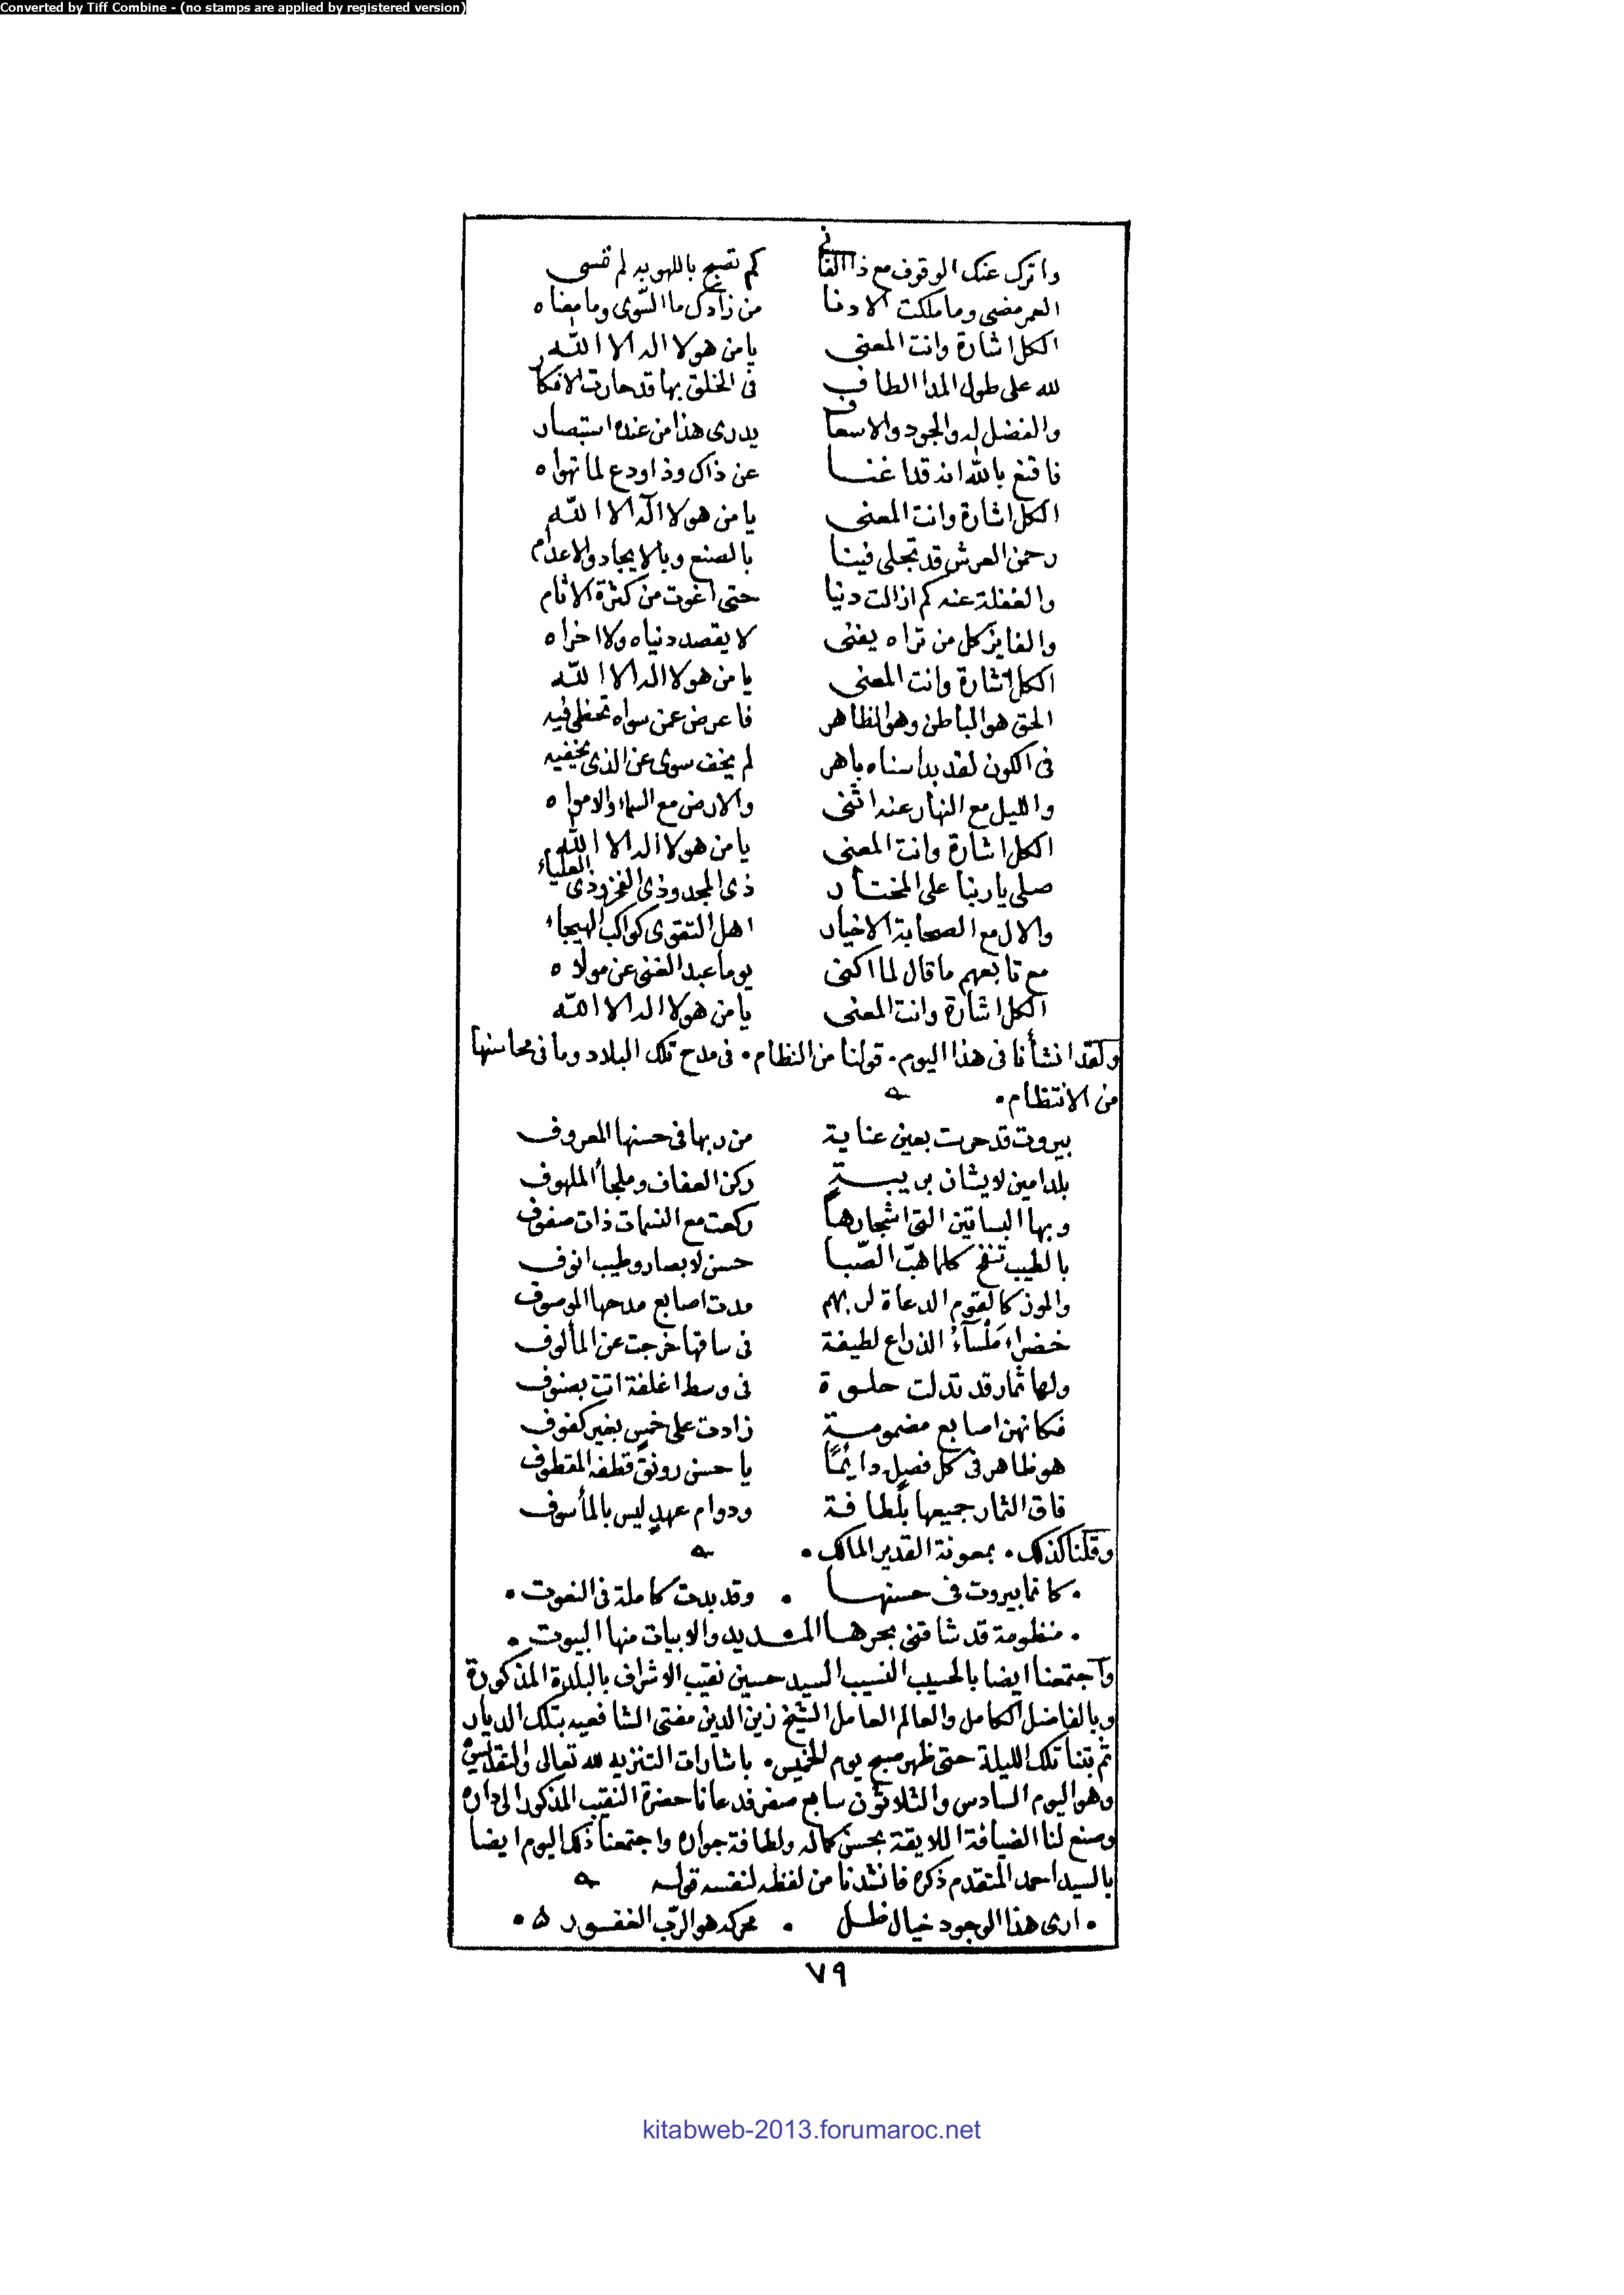 Converted by Tiff Combine - (no stamps are applied by registered version)
واترك عنك الوقوف مع ذا الفاني كم تصبح باللهو به لم تمسي
العمر مضى وما ملكت الادنا من زادك ما السّوى وما معناه
الكل اشارة وانت المعنى يا من هو لا اله الا اللّه
لله على طول المدا الطاف فى الخلق بها قد حارت الافكار
والفضل له والجود والاسعاف يدرى هذا من عنده استبصار
فاقنع بالله انه قد اغنا عن ذاك وذا ودع لما تهواه
الكل اشارة وانت المعنى يا من هو لا اله الا اللّه
رحمن العرش قد تجلى فينا بالصنع وبالايجاد والاعدام
والغفلة عنه كم ازالت دنيا حتى اغوت من كثرة الاثام
والفايز كل من تراه يفنى لا يقصد دنياه ولا اخراه
الكل اشارة وانت المعنى يا من هو لا اله الا اللّه
الحق هو الباطن وهو الظاهر فاعرض عمن سواه تحظى فيه
فى الكون لقد بدا سناه باهر لم يخف سوى عن الذى يخفيه
والليل مع النهار عنه اثنى والارض مع السماء والامواه
الكل اشارة وانت المعنى يا من هو لا اله الا اللّه
صلى يا ربنا على المختار ذى المجد وذى الفخر وذى العلياء
والال مع الصحابة الاخيار اهل التقوى كواكب الهيجاء
مع تابعهم ما قال لما اكنى يوما عبد الغنى عن مولاه
الكل اشارة وانت المعنى يا من هو لا اله الا اللّه
ولقد انشأنا فى هذا اليوم • قولنا من النظام • فى مدح تلك البلاد وما فى محاسنها
من الانتظام •
بيروت قد حرست بعين عناية من ربها فى حسنها المعروف
بلد امين لا يشان بريبة ركن العفاف وملجأ الملهوف
وبها البساتين التى اشجارها ركعت مع النسمات ذات صفوف
بالطيب تنفح كلما هبّ الصّبا حسن لابصار وطيب انوف
والموز كالقوم الدعاة لربهم مدت اصابع مدحها الموصوف
خضراء مَلْسَآءُ الذراع لطيفة فى ساقها خرجت عن المألوف
ولها ثمار قد تدلت حلوة فى وسط اغلفة اتت بصنوف
فكانهن اصابع مضمومة زادت على خمسٍ بغير كفوف
هو ظاهر فى كل فصلٍ دائمًا يا حسن رونق قطفه المقطوف
فاق الثمار جميعها بلطافة ودوام عهدٍ ليس بالمأسوف
وقلنا كذلك • بمعونة القدير المالك •
• كانما بيروت فى حسنها • وقد بدت كاملة فى النعوت •
• منظومة قد شاقنى بحرها المديد والابيات منها البيوت •
واجتمعنا ايضا بالحسيب النسيب السيد حسين نقيب الاشراف بالبلدة المذكورة
وبالفاضل الكامل والعالم العامل الشيخ زين الدين مفتى الشافعيه بتلك الديار
ثم بتنا تلك الليلة حتى ظهر صبح يوم الخميس • باشارات التنزيه لله تعالى والتقديس
وهو اليوم السادس والثلاثون سابع صفر فدعانا حضرة النقيب المذكور الى داره
وصنع لنا الضيافة اللايقة بحسن كماله ولطافة جواره واجتمعنا ذلك اليوم ايضا
بالسيد احمد المتقدم ذكره فانشدنا من لفظه لنفسه قوله
• ارى هذا الوجود خيال ظل • محركه هو الربّ الغفور •
٧٩
kitabweb-2013.forumaroc.net